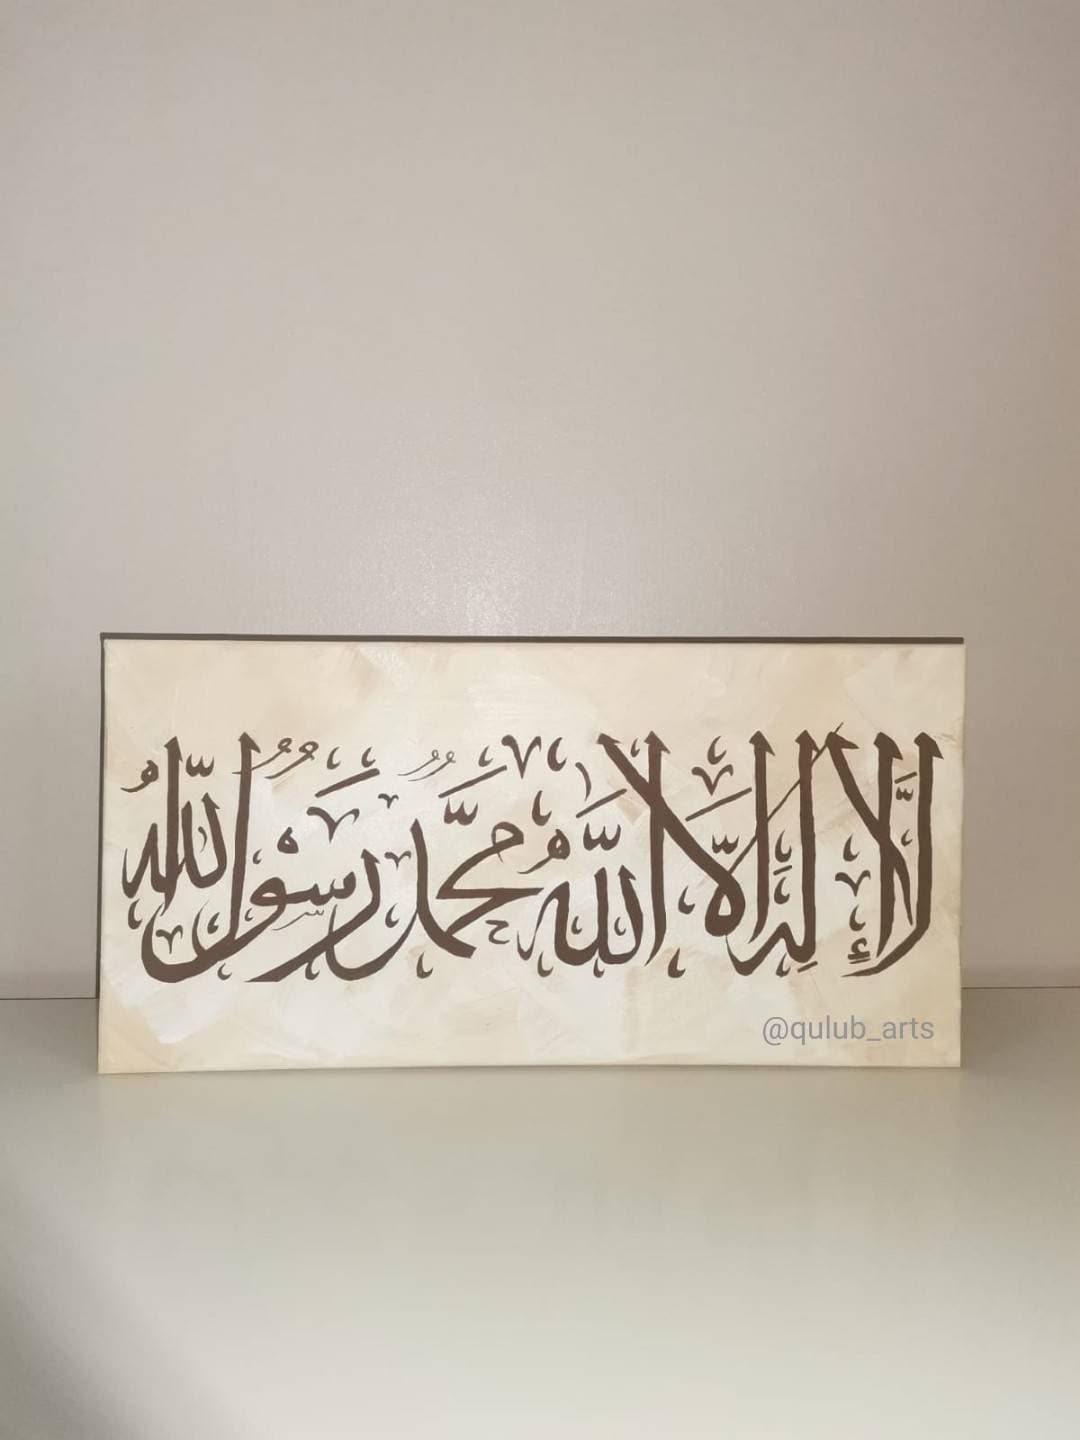 لَا إِلٰهَ إِلَّا اللّٰهُ مُحَمَّدٌ رَسُوْلُ اللّٰهِ
@qulub_arts